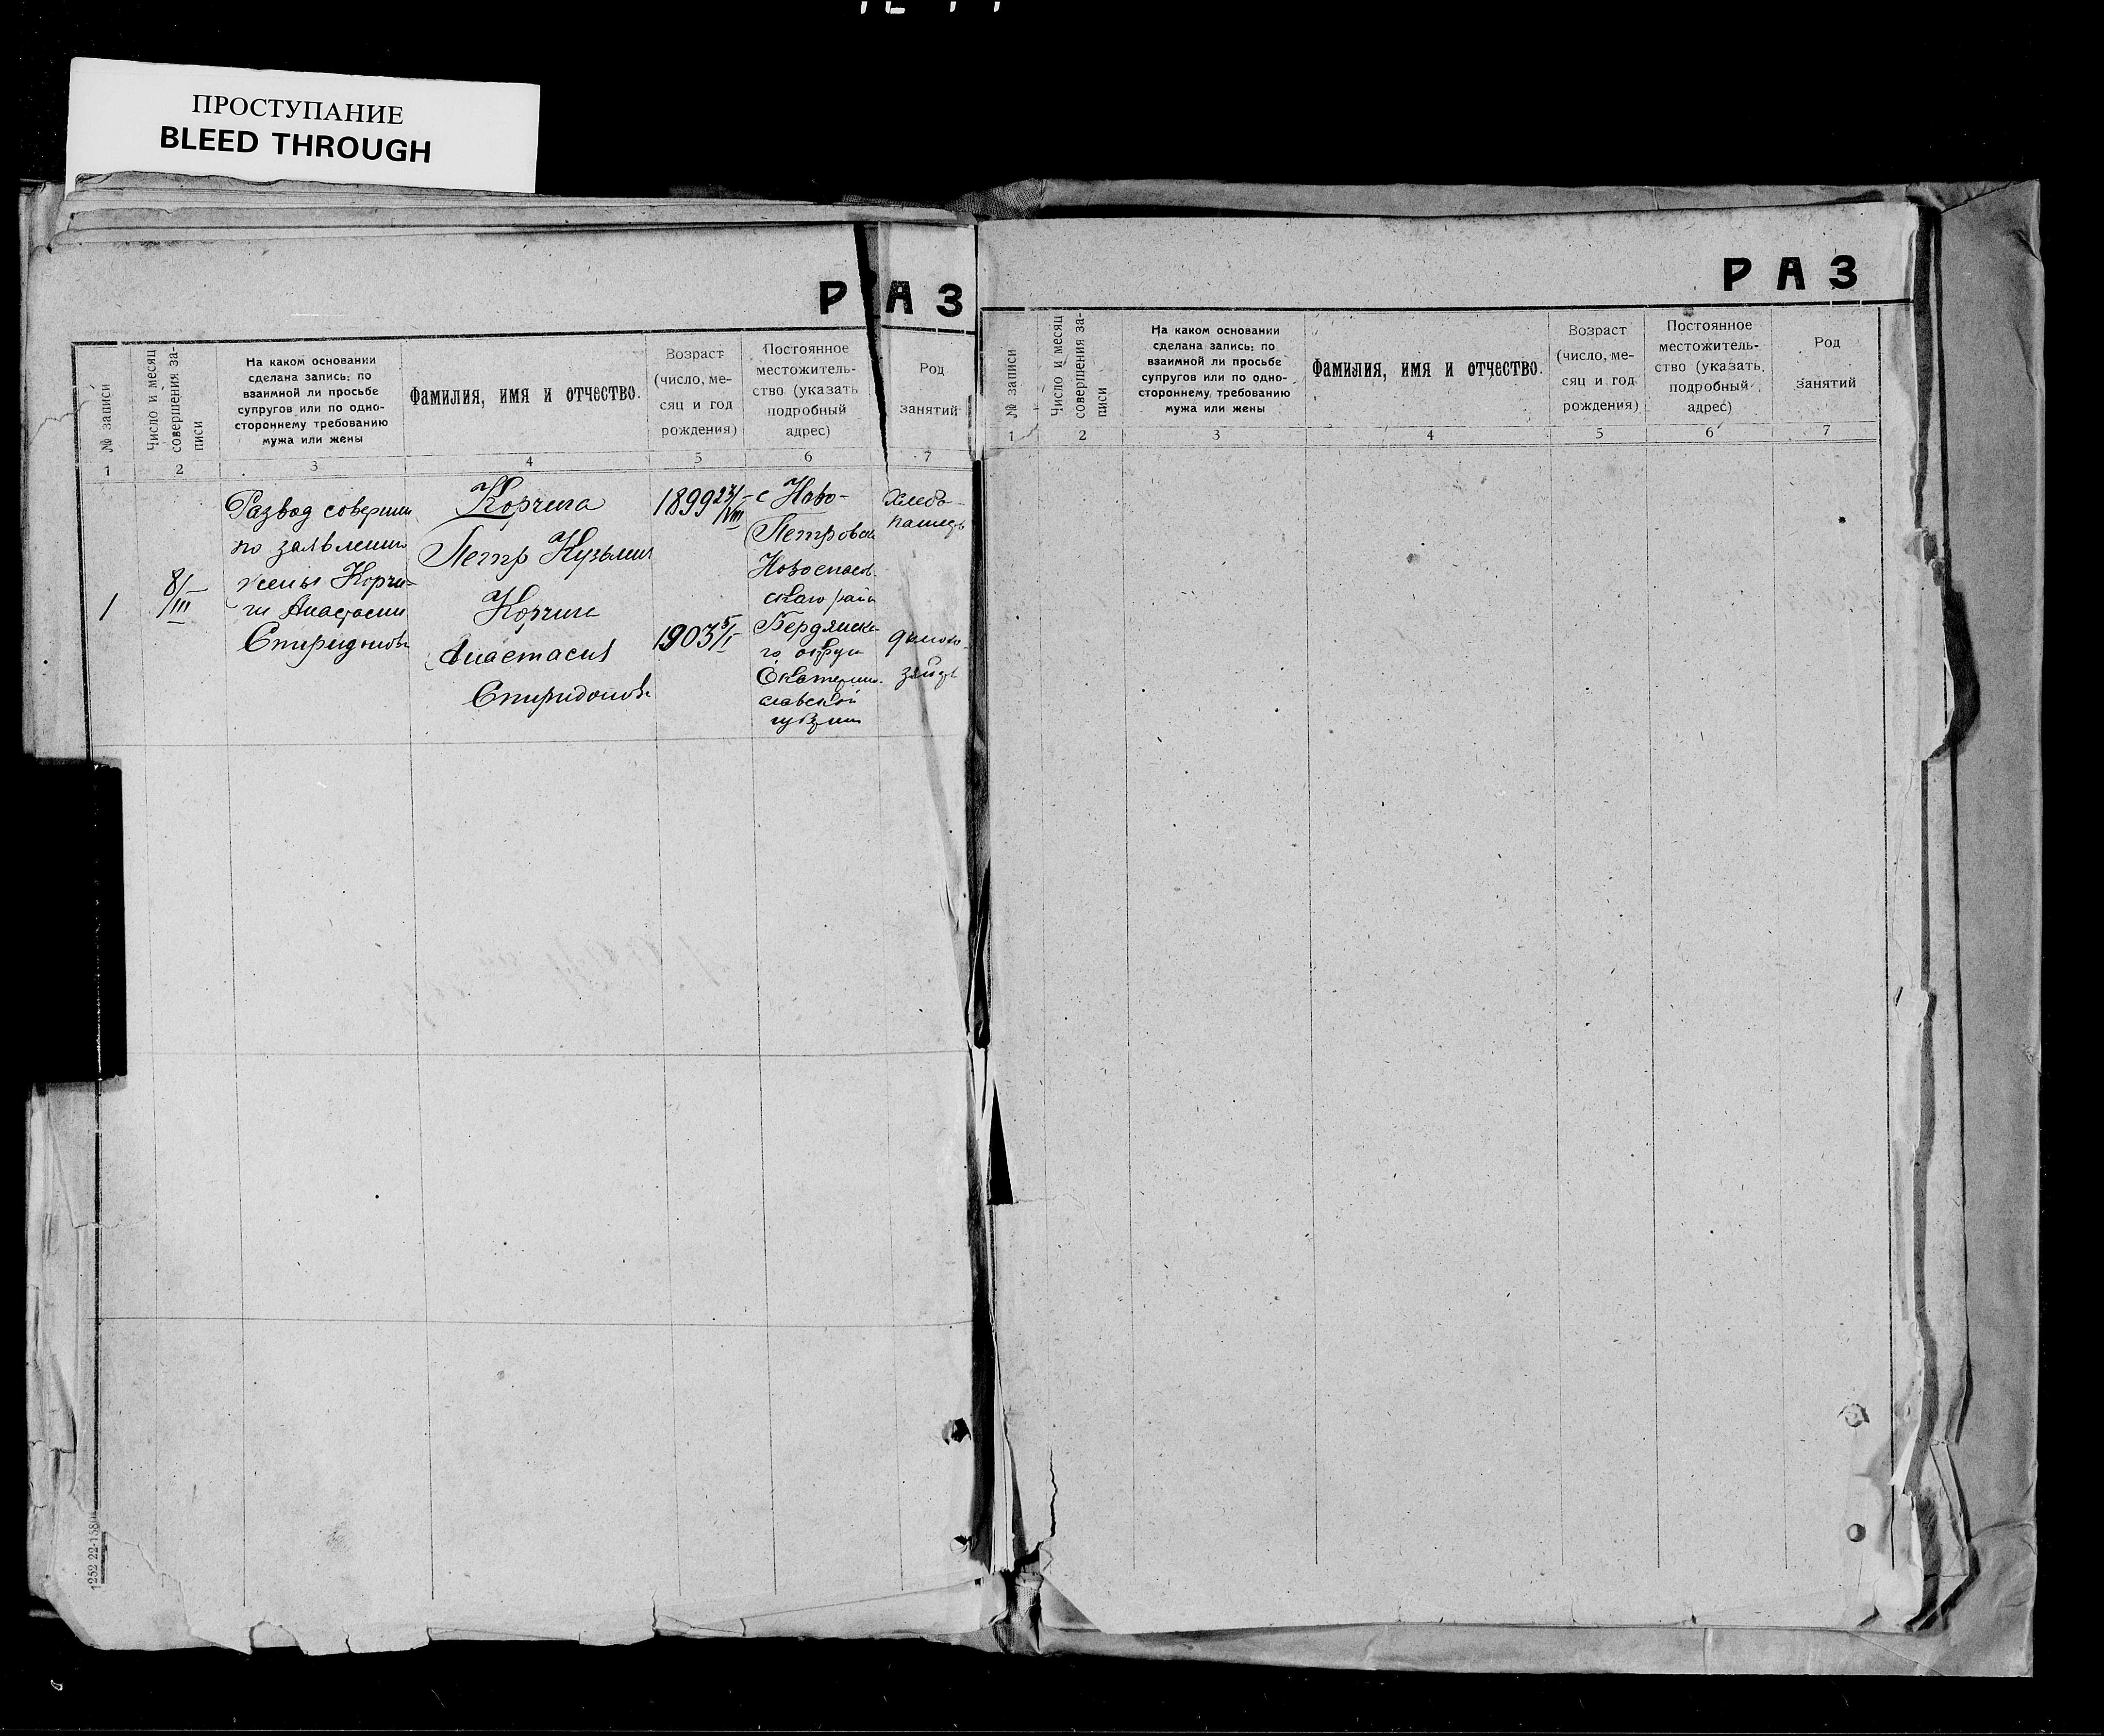 ПРОСТУПАНИЕ
BLEED THROUGH
РАЗ
№ записи
Число и месяц
совершения за-
писи
На каком основании
сделана запись: по
взаимной ли просьбе
супругов или по одно-
стороннему требованию
мужа или жены
Фамилия, имя и отчество.
Возраст
(число, ме-
сяц и год
рождения)
Постоянное
местожитель-
ство (указать
подробный
адрес)
Род
занятий
1 2 3 4 5 6 7
1
8/III
Развод соверши
по заявлению
жены Корчи-
ги Анастасии
Спиридонов
Корчига
Петр Кузьмич
Корчига
Анастасия
Спиридонов
1899 23/VIII
1903 5/I
с Ново-
Петровка
Новоспасов-
ского рай
Бердянско-
го округа
Екатерино-
славской
губернии
Хлебо-
пашец
домохо-
зяйк
1252 22-1580
РАЗ
№ записи
Число и месяц
совершения за-
писи
На каком основании
сделана запись: по
взаимной ли просьбе
супругов или по одно-
стороннему требованию
мужа или жены
Фамилия, имя и отчество.
Возраст
(число, ме-
сяц и год
рождения)
Постоянное
местожитель-
ство (указать
подробный
адрес)
Род
занятий
1 2 3 4 5 6 7